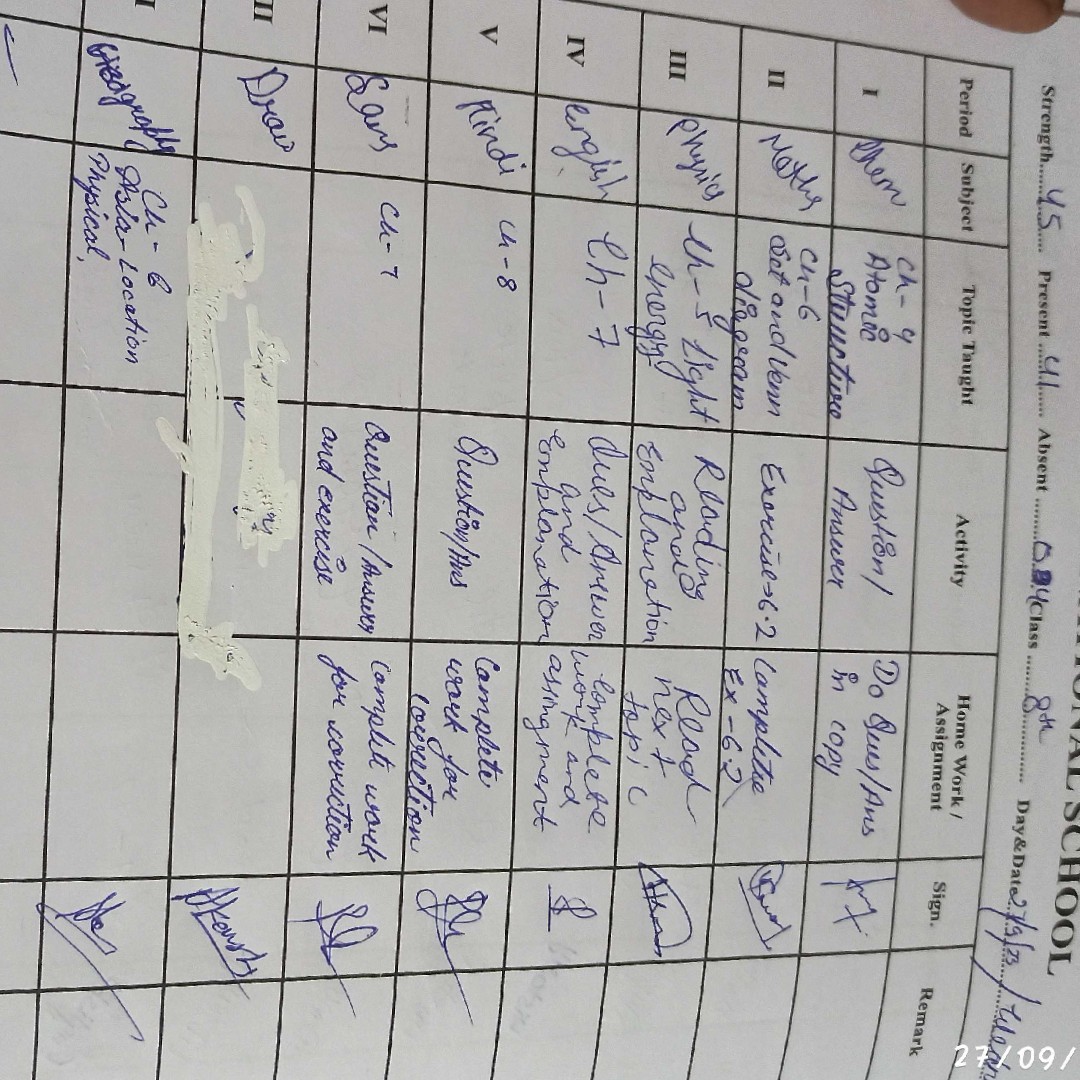 TIONAL SCHOOL
Strength......45.... Present....41...... Absent.........04Class......8th............ Day&Date27/9/23/Wed
Period Subject Topic Taught Activity Home Work / Assignment Sign. Remark
I Chem Ch-4 Atomic Structure Question/ Answer Do Ques/Ans in copy
II Maths Ch-6 Set and Venn diagram Exercise→6.2 Complete Ex-6.2
III Physics Ch-5 Light energy Reading and Explaination Read next topic
IV English Ch-7 Ques/Answer and Explanation Complete work and assingment
V Hindi Ch-8 Question/Ans Complete work for correction
VI Sans Ch-7 Question/Answer and exercise complete work for correction
II Draw
I Geography Ch-6 Asia-Location Physical,
27/09/